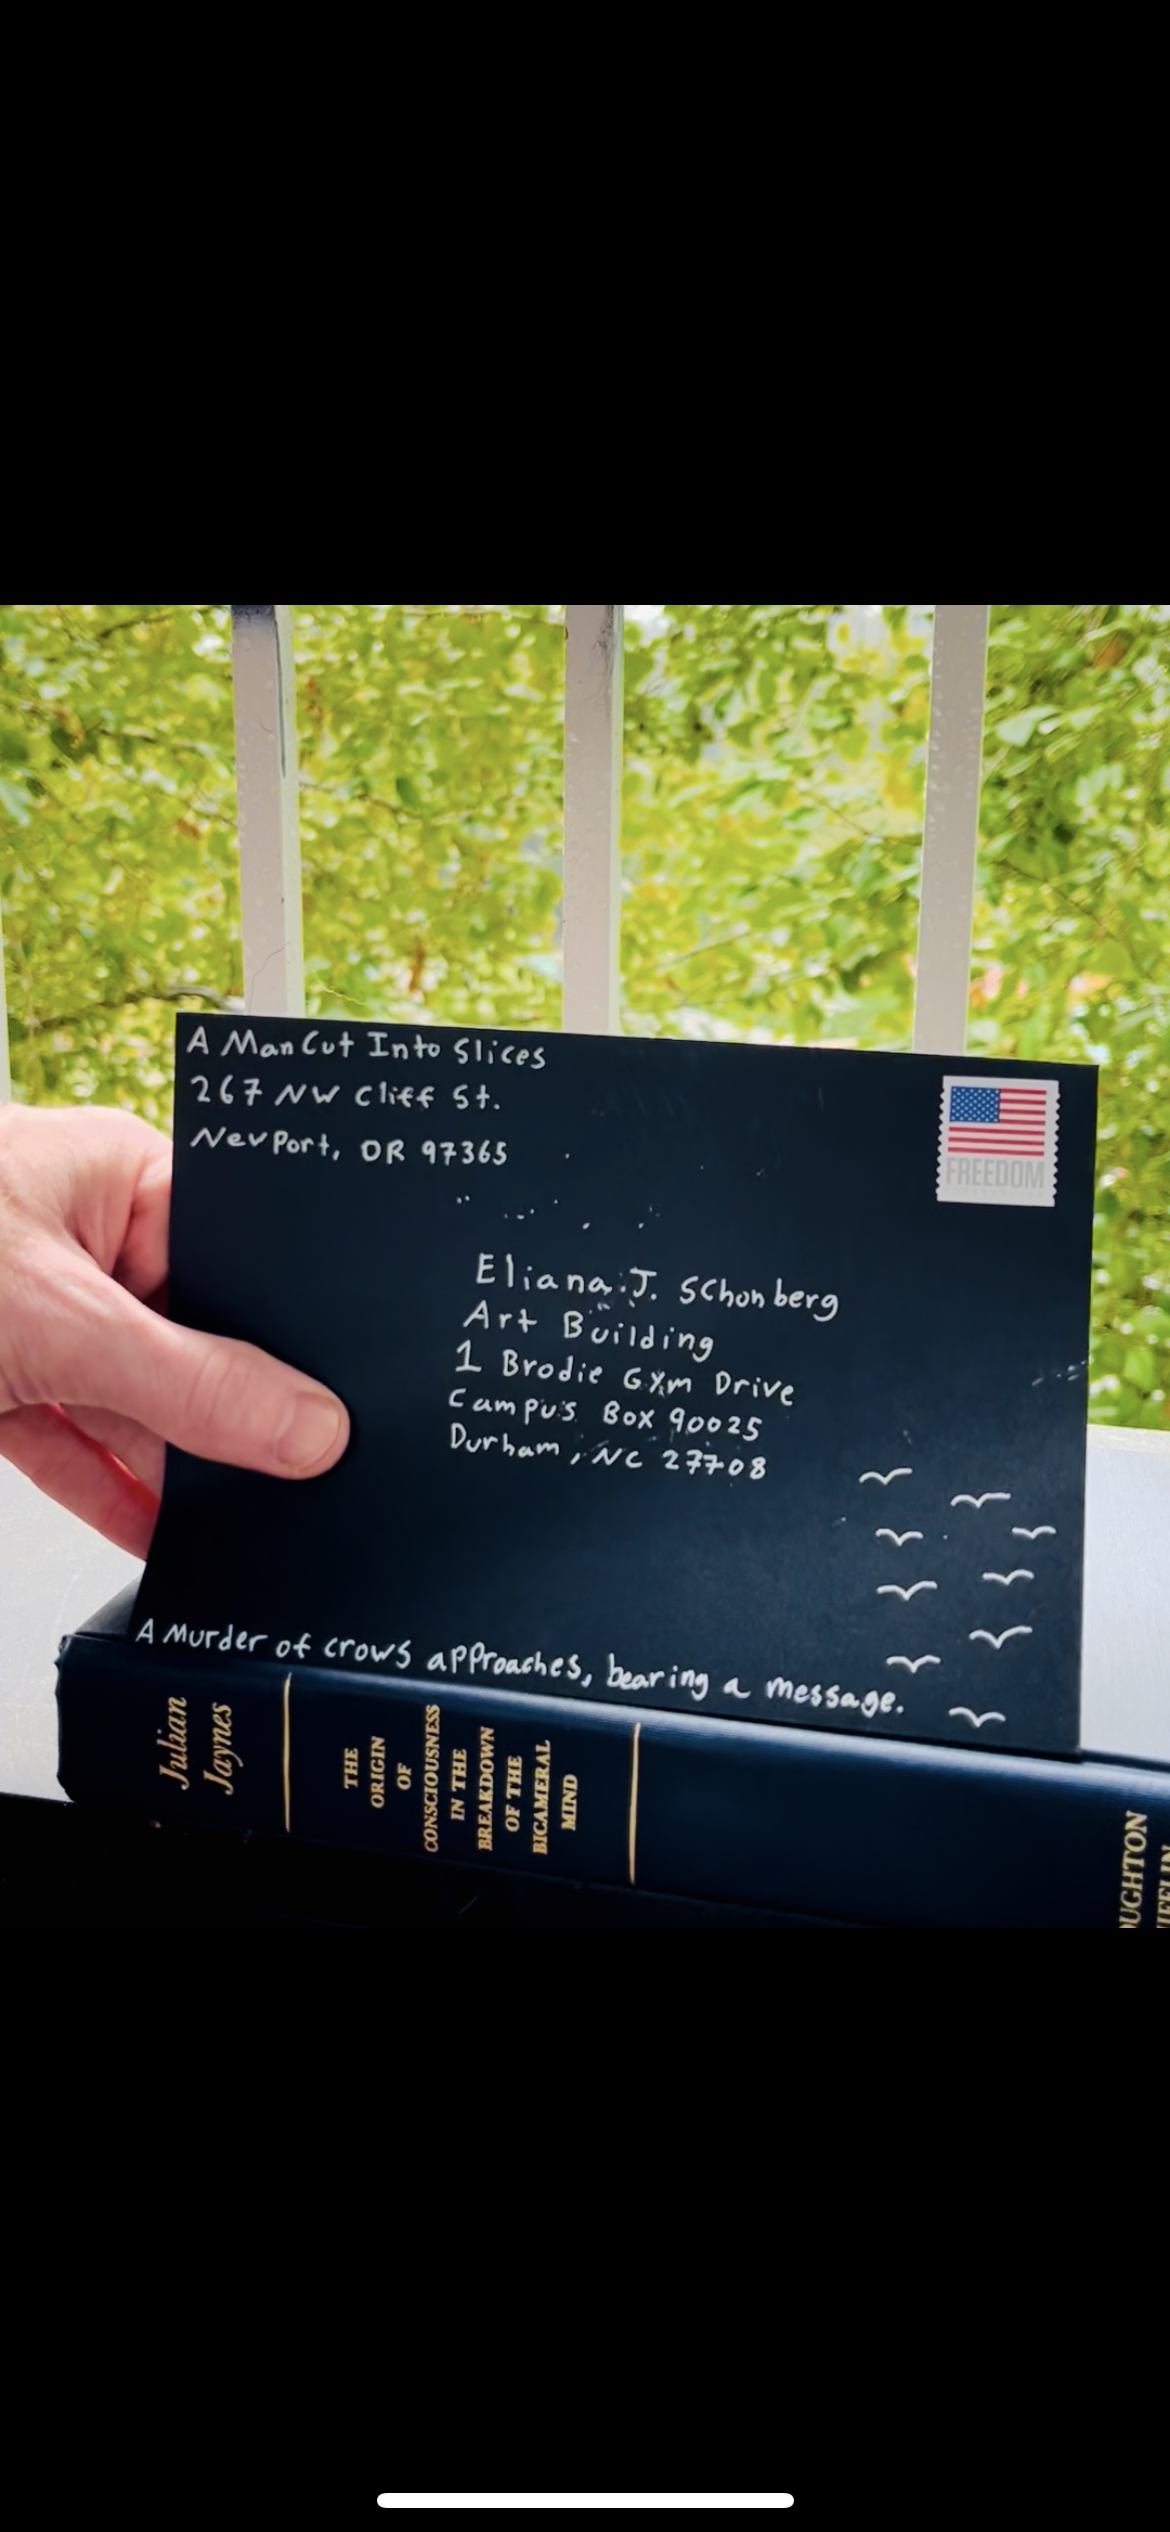 A Man Cut Into Slices
267 NW Cliff St.
Newport, OR 97365
FREEDOM
Eliana J. Schonberg
Art Building
1 Brodie Gym Drive
Campus Box 90025
Durham, NC 27708
A Murder of crows approaches, bearing a message.
Julian
Jaynes
THE
ORIGIN
OF
CONSCIOUSNESS
IN THE
BREAKDOWN
OF THE
BICAMERAL
MIND
OUGHTON